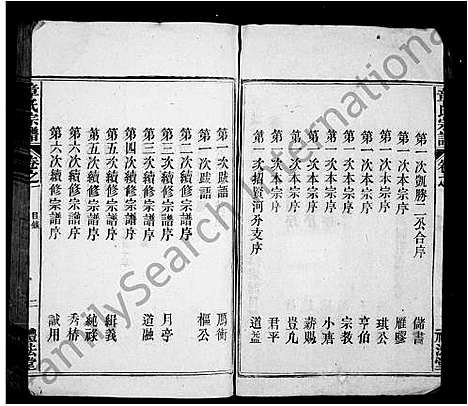 童氏宗譜
卷之一
第一次凱勝二公合序 儲書
第一次本宗序 雁膠
第一次本宗序 琪公
第一次本宗序 亨伯
第一次本宗序 宗教
第一次本宗序 小唐
第一次本宗序 薪賜
第一次本宗序 豈凡
第一次本宗序 君平
第一次招賢河外支序 道益
第一次跋語 雁衡
第一次跋語 樞公
第二次續修宗譜序 月亭
第三次續修宗譜序 道融
第四次續修宗譜序
第五次續修宗譜序 緝義
第五次續修宗譜序 純祿
第六次續修宗譜序 秀橋
第六次續修宗譜序 誠用
童氏宗譜
卷之一
目錄
二
FamilySearch International